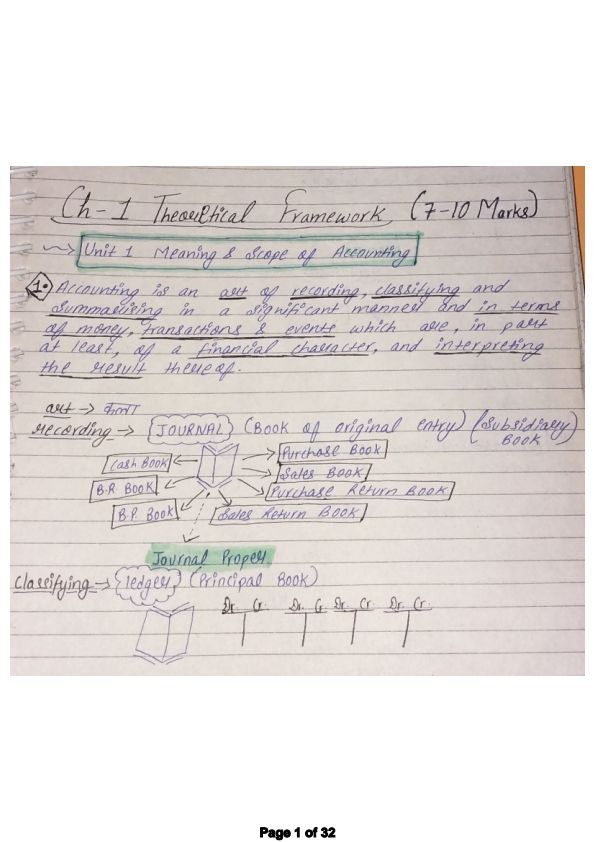 Ch-1 Theoretical Framework (7-10 Marks)
Unit 1 Meaning & Scope of Accounting
1. Accounting is an art of recording, classifying and
summarising in a significant manner and in terms
of money, transactions & events which are, in part
at least, of a financial character, and interpreting
the result thereof.
art → कला
recording → JOURNAL (Book of original entry) (Subsidiary Book)
Cash Book
B.R. Book
B.P. Book
Purchase Book
Sales Book
Purchase Return Book
Sales Return Book
Journal Proper
Classifying → ledger (Principal Book)
Dr. Cr. Dr. Cr. Dr. Cr. Dr. Cr.
Page 1 of 32